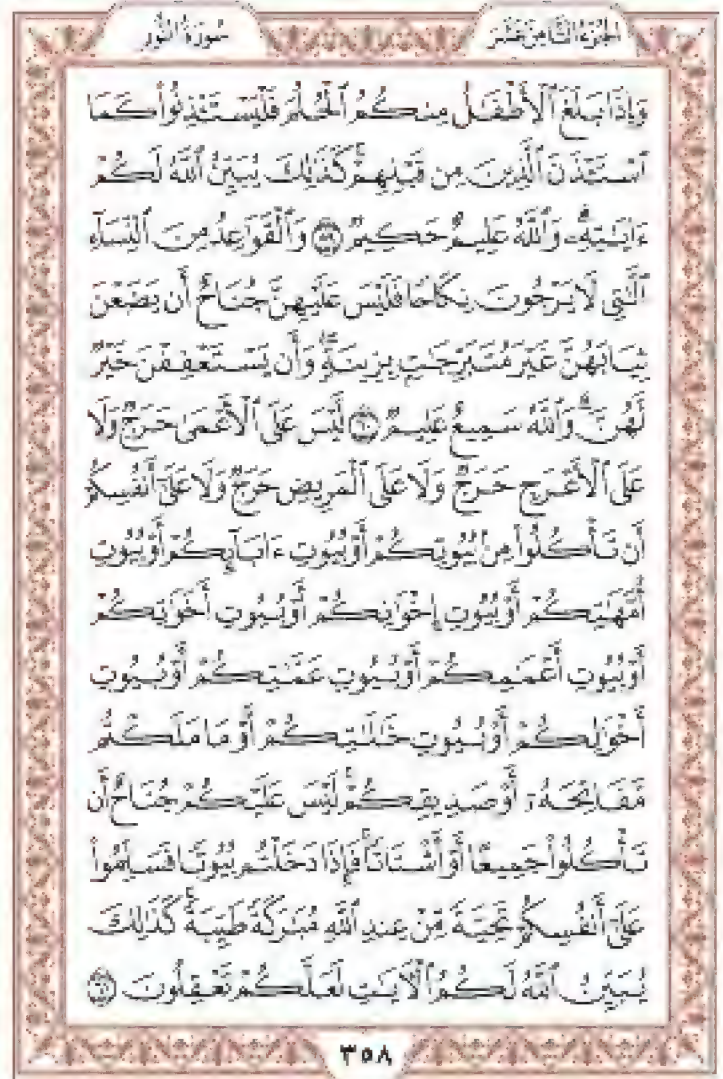 سُورَةُ النُّورِ
الجُزْءُ الثَّامِنَ عَشَرَ
وَإِذَا بَلَغَ ٱلْأَطْفَٰلُ مِنكُمُ ٱلْحُلُمَ فَلْيَسْتَـْٔذِنُوا۟ كَمَا
ٱسْتَـْٔذَنَ ٱلَّذِينَ مِن قَبْلِهِمْ ۚ كَذَٰلِكَ يُبَيِّنُ ٱللَّهُ لَكُمْ
ءَايَٰتِهِۦ ۗ وَٱللَّهُ عَلِيمٌ حَكِيمٌ ۝٥٩ وَٱلْقَوَٰعِدُ مِنَ ٱلنِّسَآءِ
ٱلَّٰتِى لَا يَرْجُونَ نِكَاحًا فَلَيْسَ عَلَيْهِنَّ جُنَاحٌ أَن يَضَعْنَ
ثِيَابَهُنَّ غَيْرَ مُتَبَرِّجَٰتٍۭ بِزِينَةٍ ۖ وَأَن يَسْتَعْفِفْنَ خَيْرٌ
لَّهُنَّ ۗ وَٱللَّهُ سَمِيعٌ عَلِيمٌ ۝٦٠ لَّيْسَ عَلَى ٱلْأَعْمَىٰ حَرَجٌ وَلَا
عَلَى ٱلْأَعْرَجِ حَرَجٌ وَلَا عَلَى ٱلْمَرِيضِ حَرَجٌ وَلَا عَلَىٰٓ أَنفُسِكُمْ
أَن تَأْكُلُوا۟ مِنۢ بُيُوتِكُمْ أَوْ بُيُوتِ ءَابَآئِكُمْ أَوْ بُيُوتِ
أُمَّهَٰتِكُمْ أَوْ بُيُوتِ إِخْوَٰنِكُمْ أَوْ بُيُوتِ أَخَوَٰتِكُمْ
أَوْ بُيُوتِ أَعْمَٰمِكُمْ أَوْ بُيُوتِ عَمَّٰتِكُمْ أَوْ بُيُوتِ
أَخْوَٰلِكُمْ أَوْ بُيُوتِ خَٰلَٰتِكُمْ أَوْ مَا مَلَكْتُم
مَّفَاتِحَهُۥٓ أَوْ صَدِيقِكُمْ ۚ لَيْسَ عَلَيْكُمْ جُنَاحٌ أَن
تَأْكُلُوا۟ جَمِيعًا أَوْ أَشْتَاتًا ۚ فَإِذَا دَخَلْتُم بُيُوتًا فَسَلِّمُوا۟
عَلَىٰٓ أَنفُسِكُمْ تَحِيَّةً مِّنْ عِندِ ٱللَّهِ مُبَٰرَكَةً طَيِّبَةً ۚ كَذَٰلِكَ
يُبَيِّنُ ٱللَّهُ لَكُمُ ٱلْءَايَٰتِ لَعَلَّكُمْ تَعْقِلُونَ ۝٦١
٣٥٨